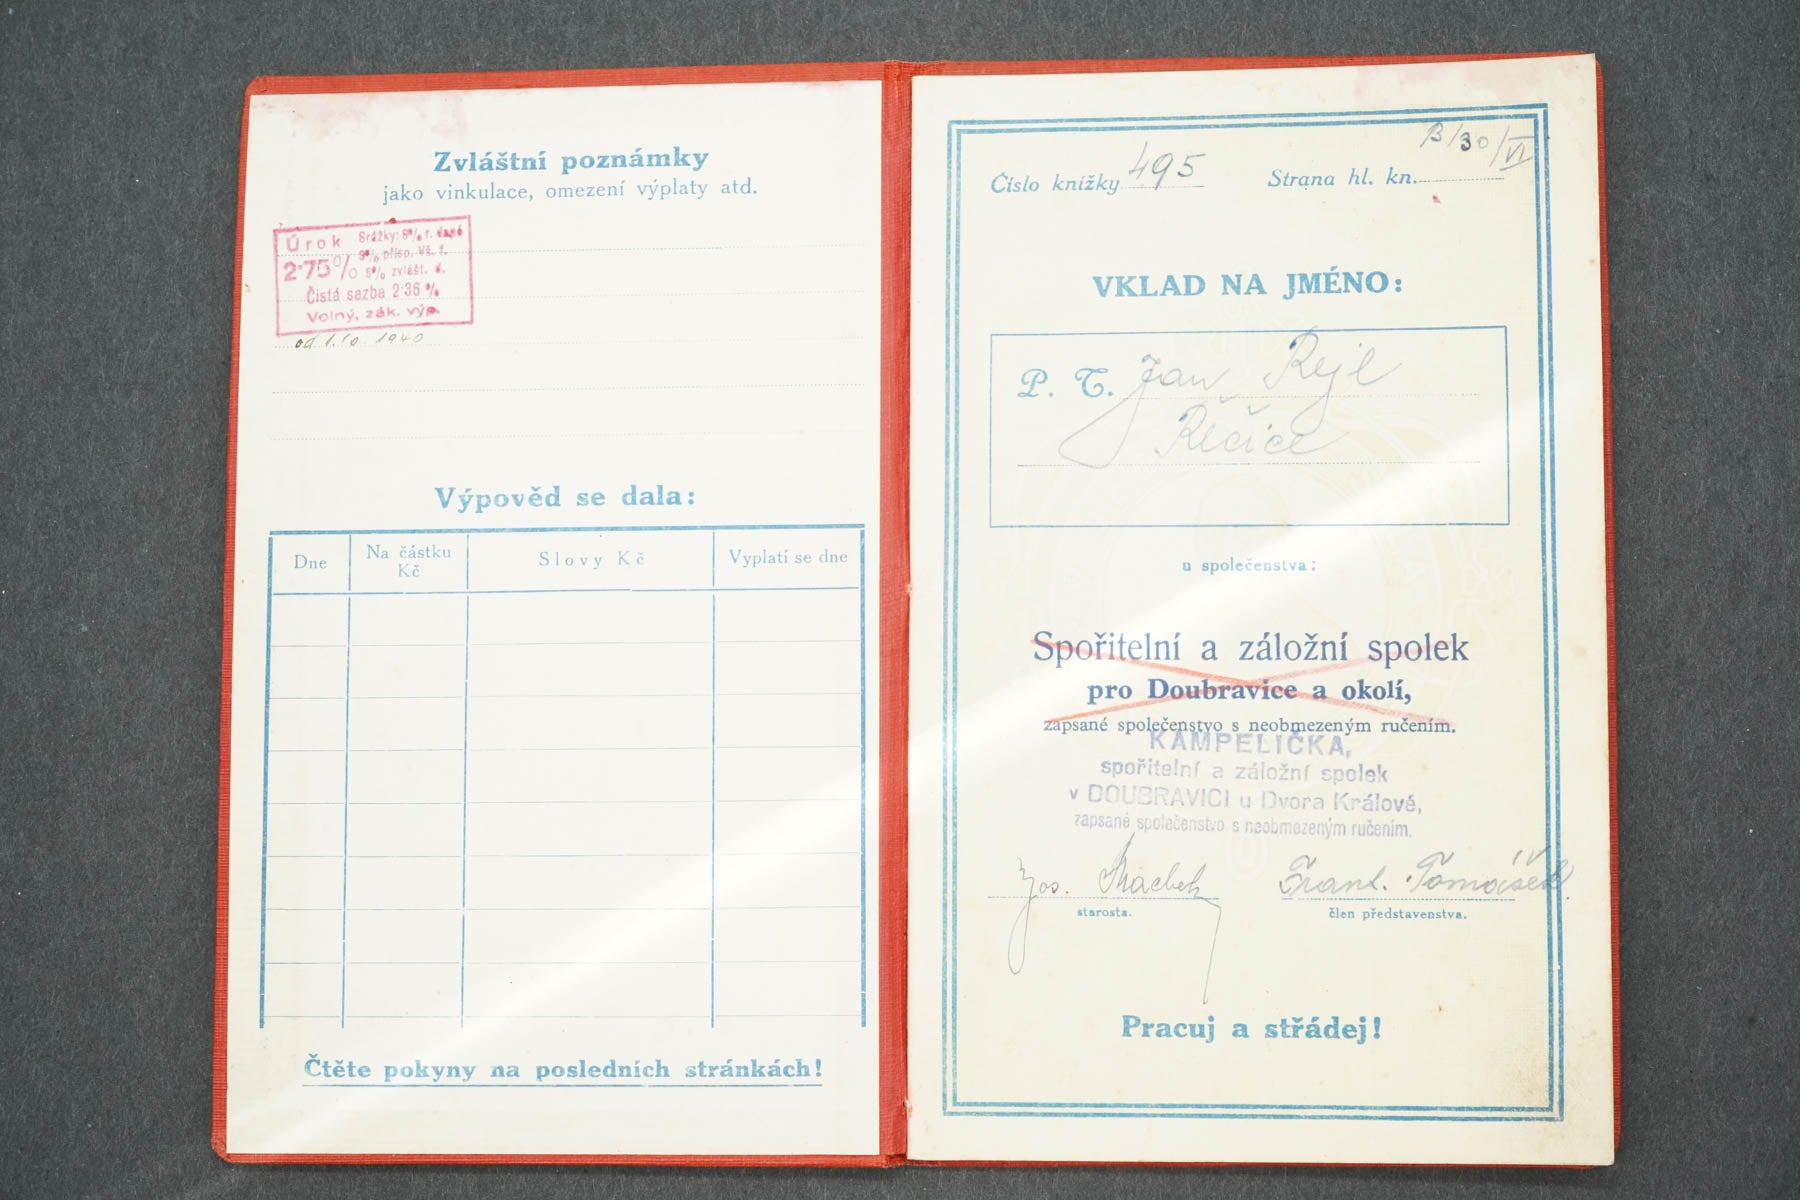 Zvláštní poznámky
jako vinkulace, omezení výplaty atd.
Úrok Srážky: 6% r. daně
2·75% 3% přísp. Vš. f.
5% zvlášt. d.
Čistá sazba 2·36 %
Volný, zák. výp.
od 1.10 1940
Výpověd se dala:
Dne
Na částku Kč
Slovy Kč
Vyplatí se dne
Čtěte pokyny na posledních stránkách!
B/30/VI
Číslo knížky 495 Strana hl. kn.
VKLAD NA JMÉNO:
P. T. Jan Rejl
Řečice
u společenstva:
Spořitelní a záložní spolek
pro Doubravice a okolí,
zapsané společenstvo s neobmezeným ručením.
KAMPELIČKA,
spořitelní a záložní spolek
v DOUBRAVICI u Dvora Králové,
zapsané společenstvo s neobmezeným ručením.
Jos. Machek Frant. Tomášek
starosta. člen představenstva.
Pracuj a střádej!